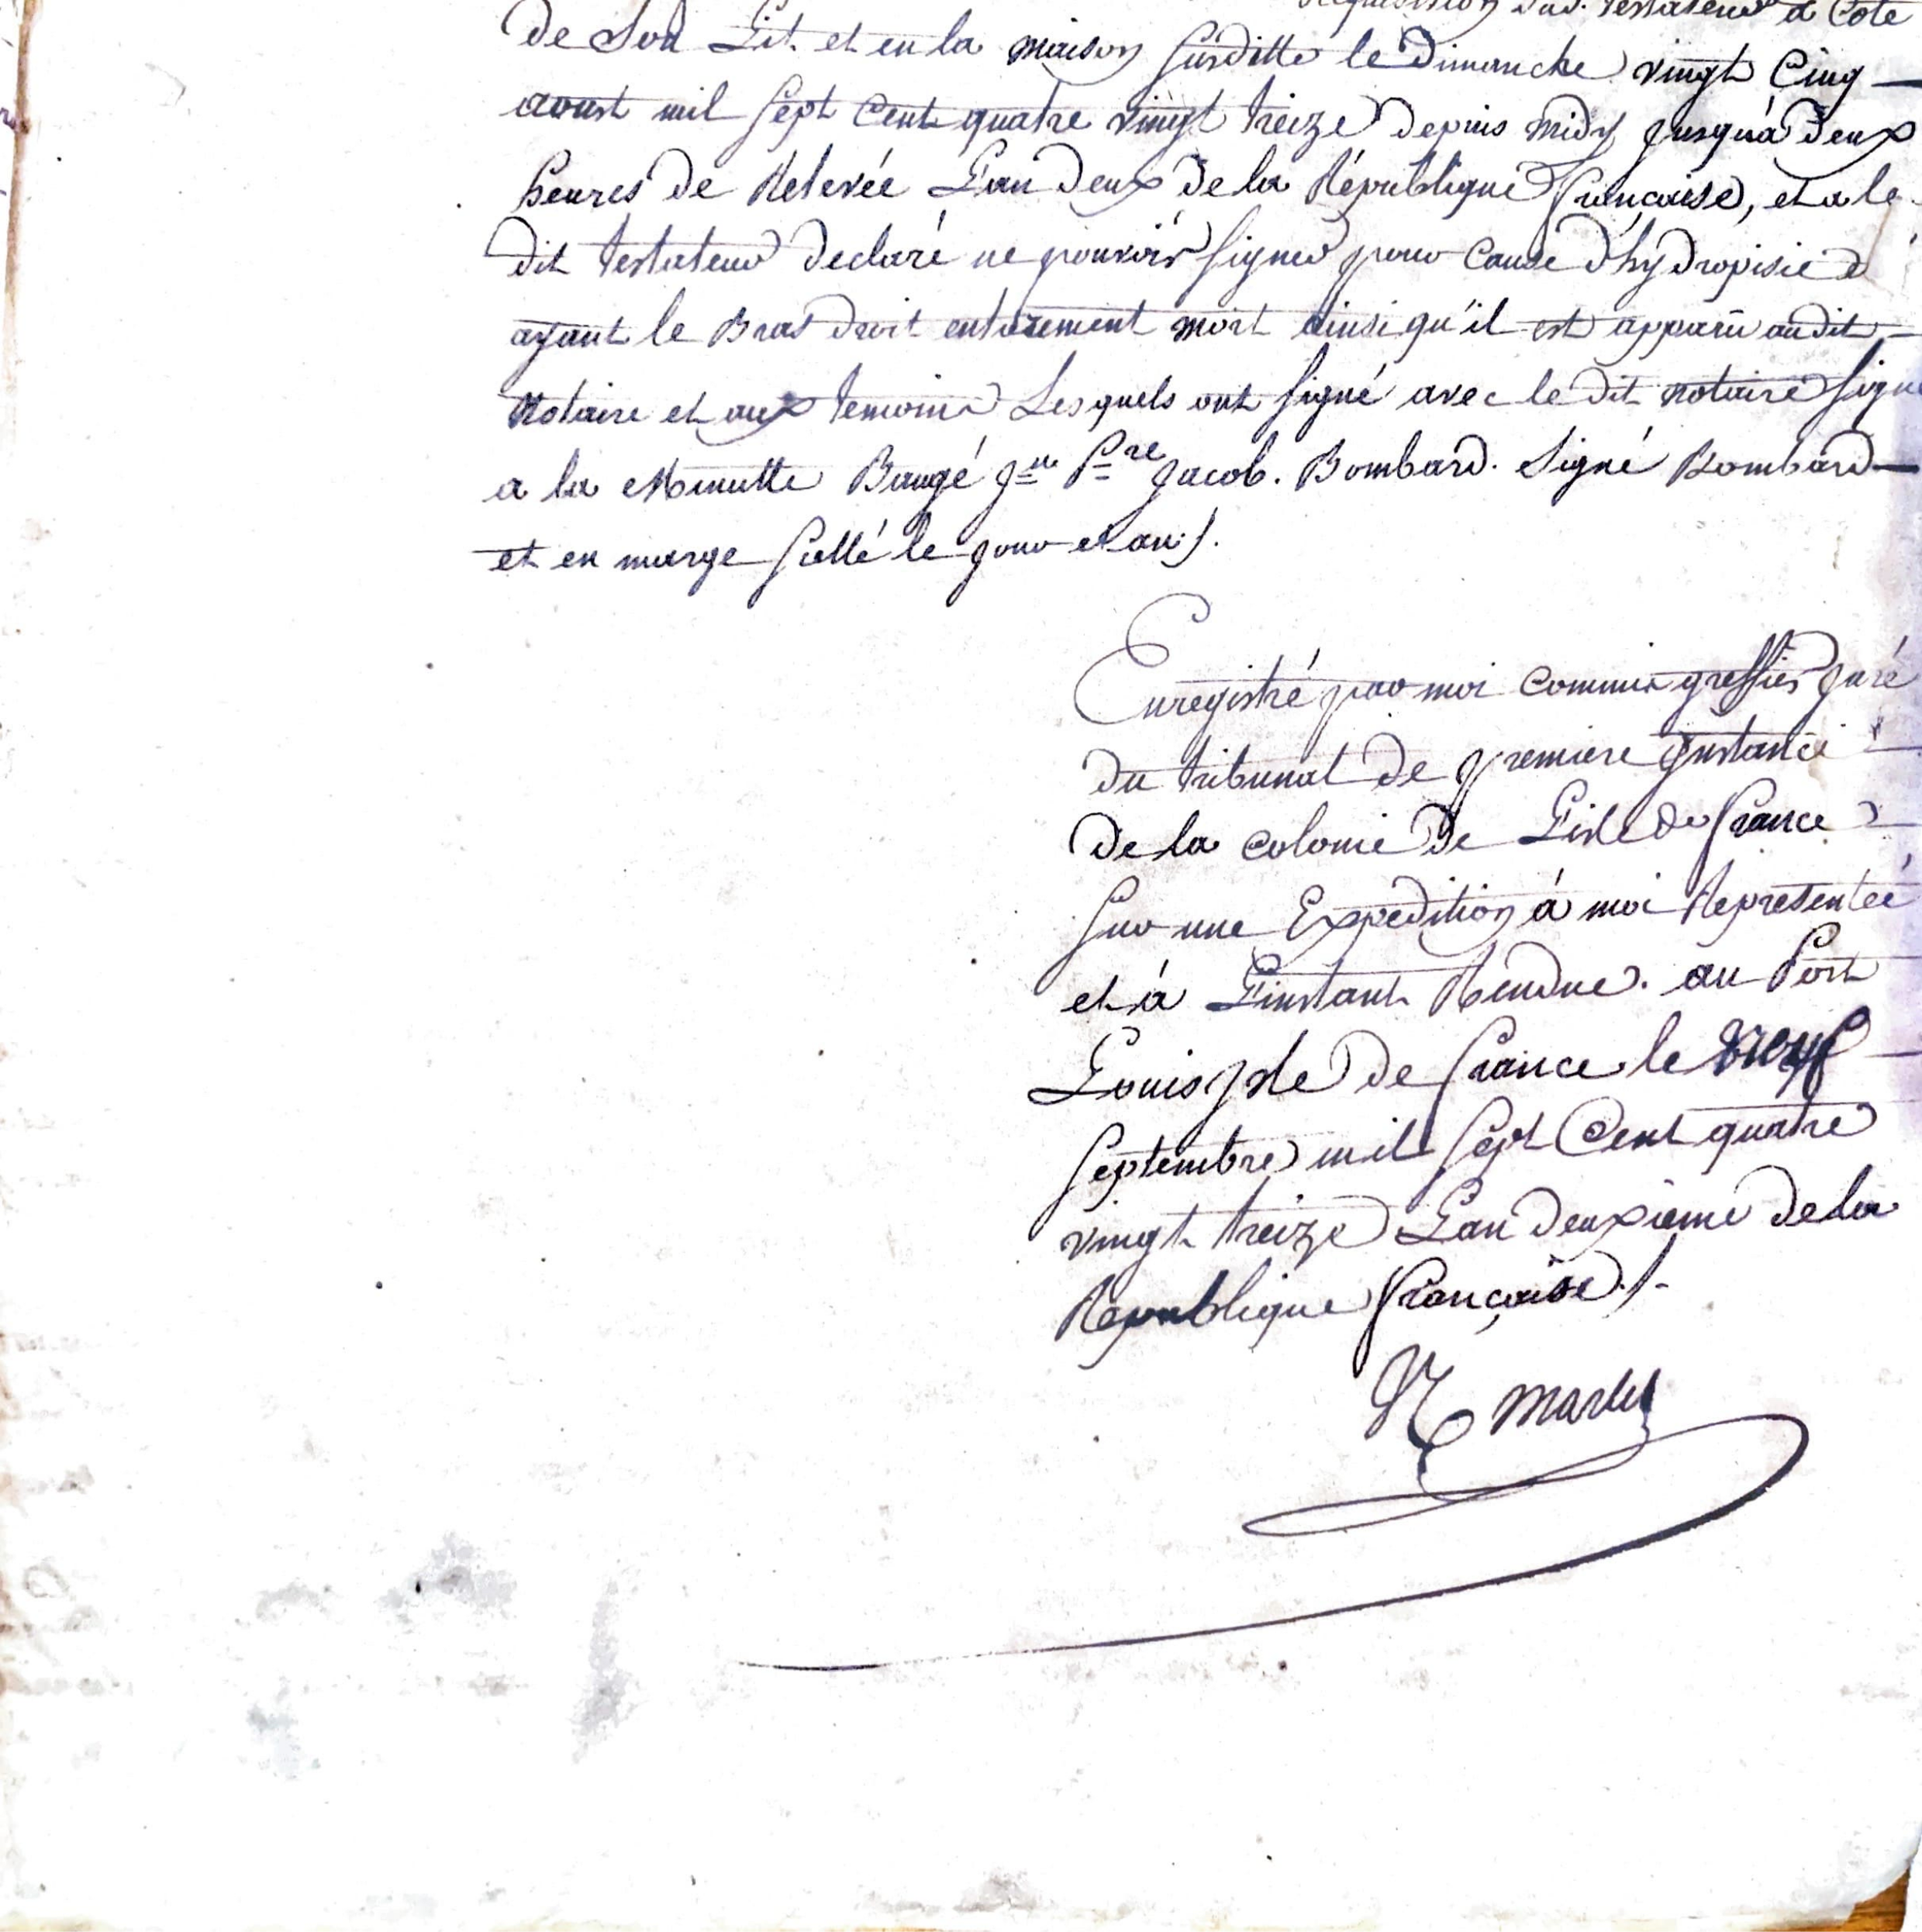 réquisition dud. testateur a Coté
de Son Lit et en la maison susditte le Dimanche vingt Cinq
aoust mil sept Cent quatre vingt treize depuis midy jusqu'à deux
heures de Relevée L'an deux de la République françoise, et a le
dit testateur declaré ne pouvoir signer pour Cause d'hydropisie
ayant le Bras droit entierement mort ainsi qu'il est apparû audit
Notaire et aux temoins Lesquels ont signé avec le dit notaire signé
a la Minutte Baugé Jne Pre Jacob. Bombard. Signé Bombard
et en marge scellé le jour et an ./.
Enregistré par moi Commis greffier juré
du tribunal de premiere instance
de la Colonie de L'isle de france
sur une Expedition à moi Representée
et à L'instant Rendue. au Port
Louis Isle de france le neuf
septembre mil sept Cent quatre
vingt treize L'an deuxieme de la
Republique françoise ./.
martin